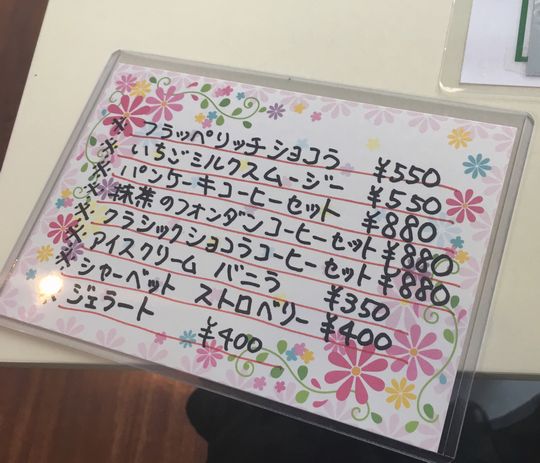 * フラッペリッチショコラ ¥550
* いちごミルクスムージー ¥550
* パンケーキコーヒーセット ¥880
* 抹茶のフォンダンコーヒーセット ¥880
* クラシックショコラコーヒーセット ¥880
* アイスクリーム バニラ ¥350
* シャーベット ストロベリー ¥400
* ジェラート ¥400